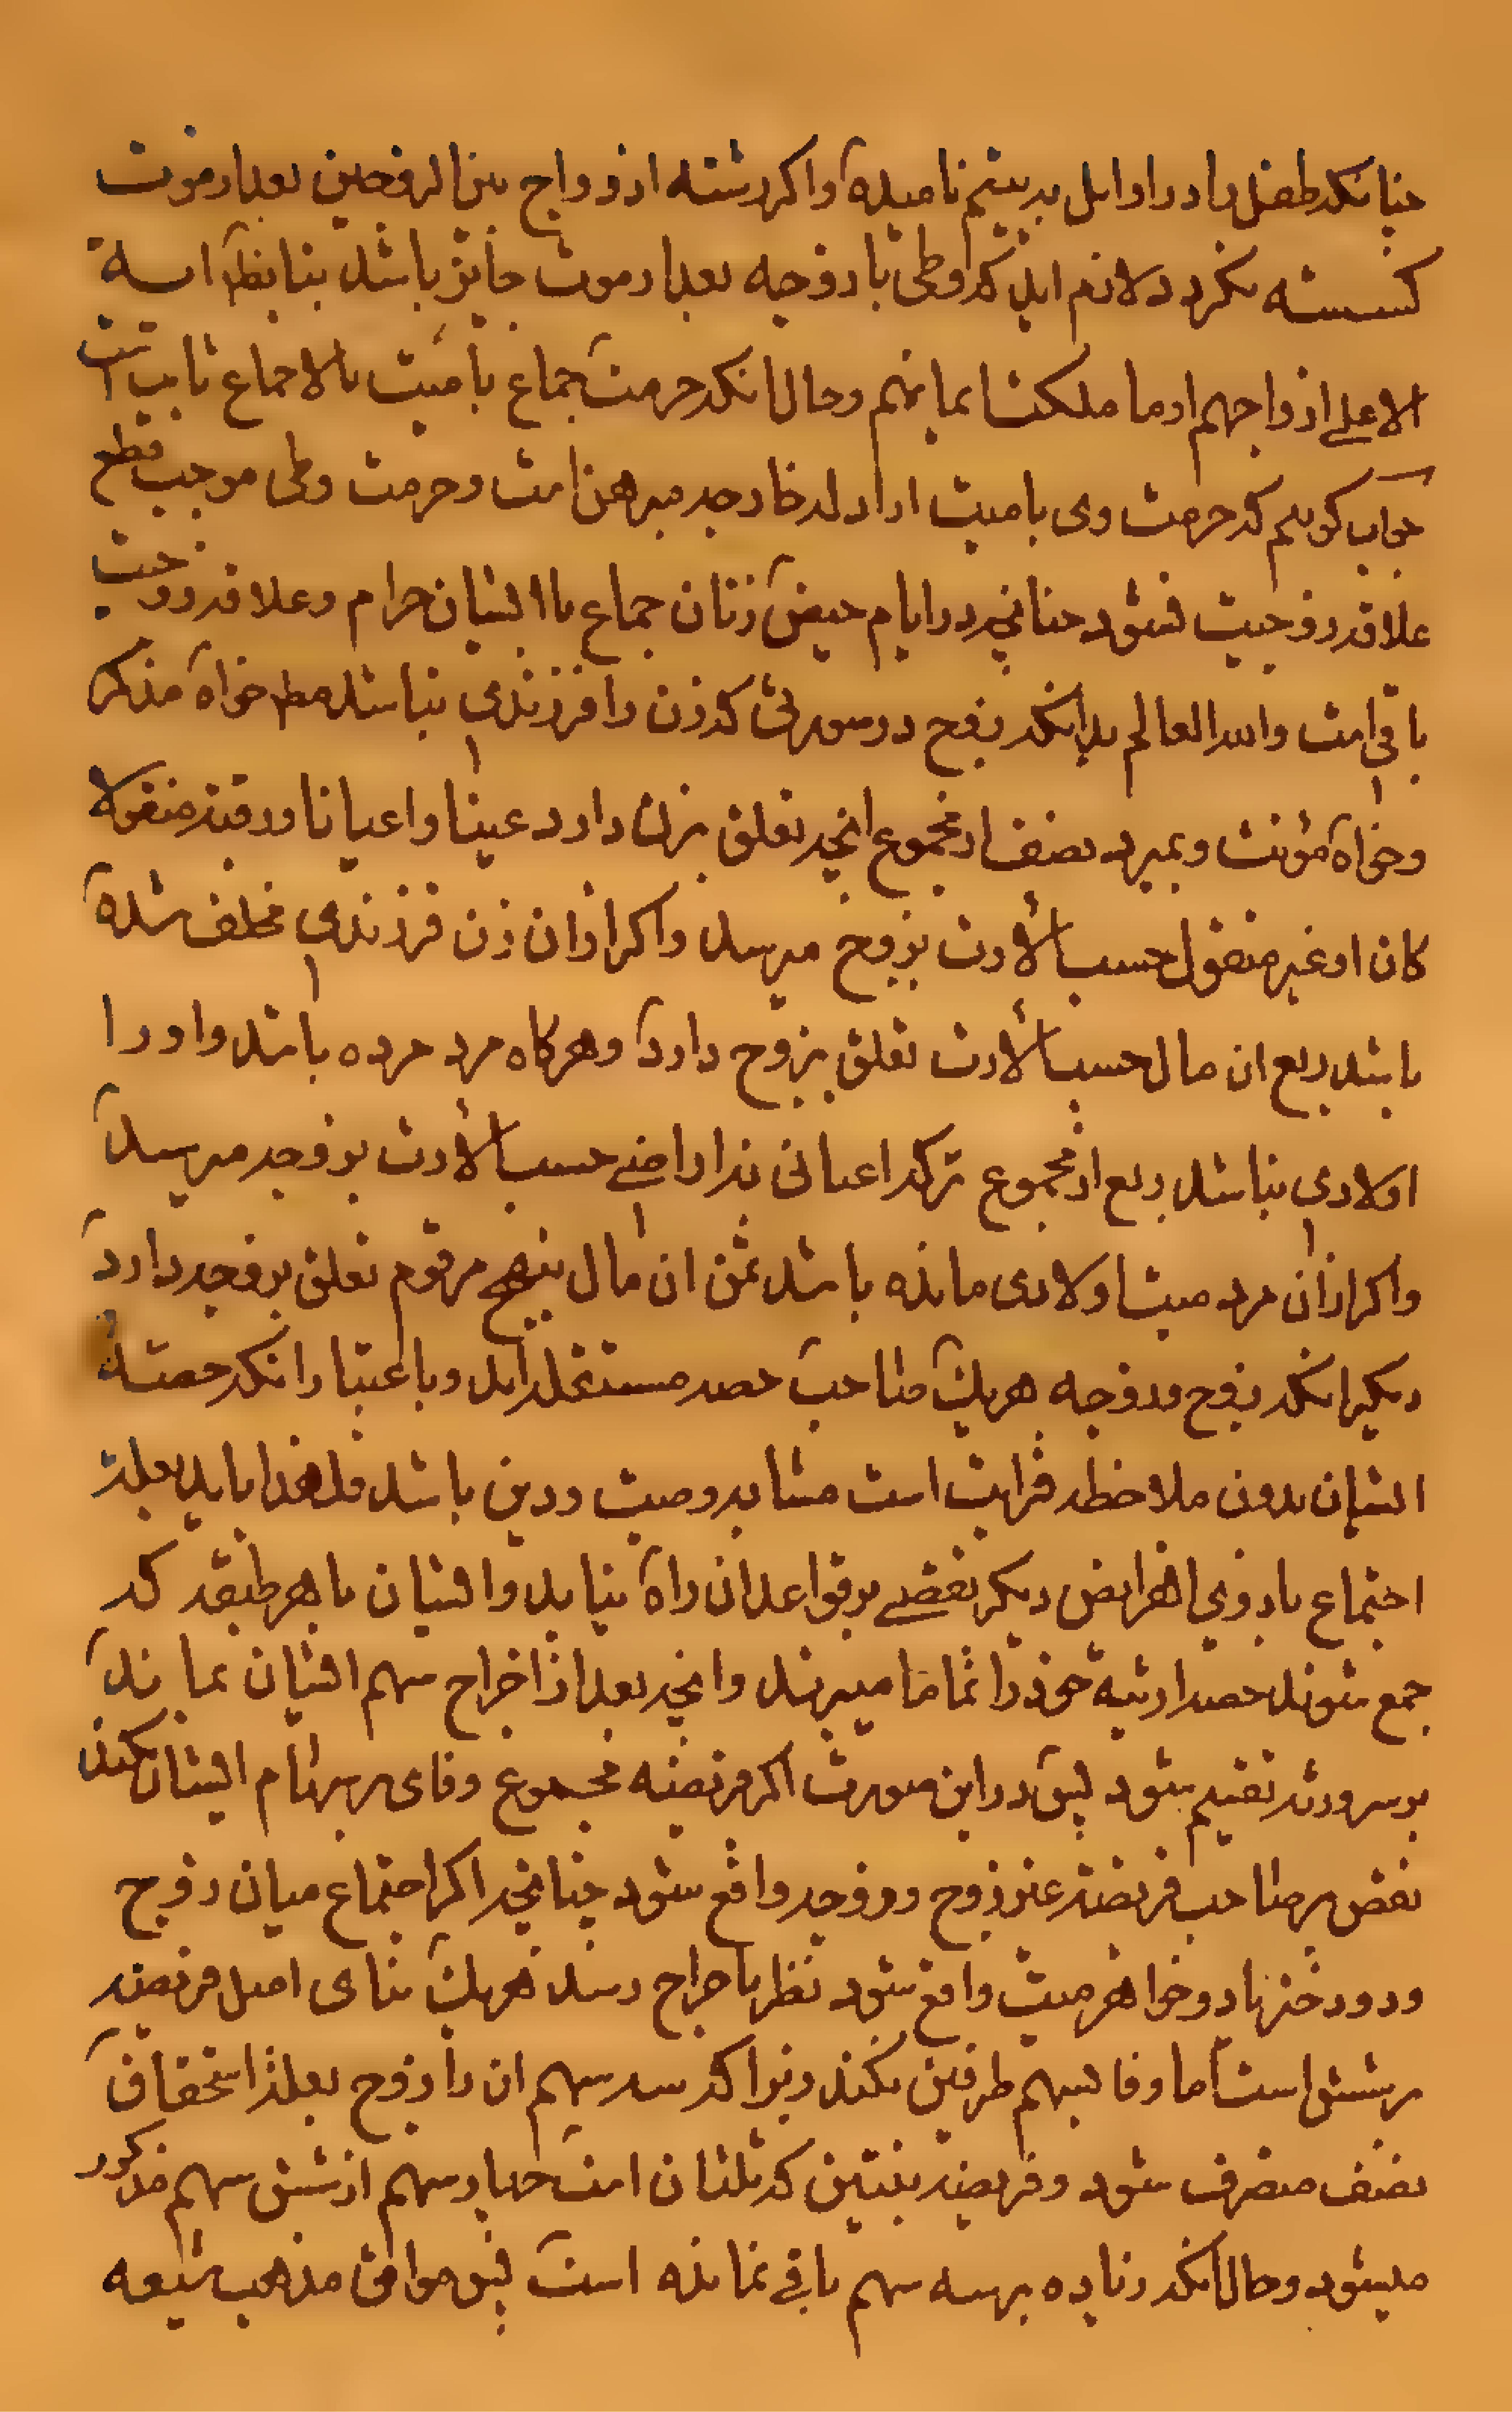 چنانکه طفل را در اوایل بد یتیم نامیده و اگر رشته ازدواج بین الزوجین بعد از موت
گسسته نکردد لازم اید که وطی با زوجه بعد از موت جایز باشد بنا بظاهر ایه
الا علی ازواجهم او ما ملکت ایمانهم و حال انکه حرمت جماع با میت بالاجماع ثابت است
جواب کوییم که حرمت وی با میت از ادله خارجه مبرهن است و حرمت وطی موجب قطع
علاقه زوجیت نشود چنانچه در ایام حیض زنان جماع با ایشان حرام و علاقه زوجیت
باقی است والله العالم بدانکه زوج در صورتی که زن را فرزندی نباشد مط خواه مذکر
و خواه مؤنث و بمیرد نصف از مجموع انچه تعلق بزن دارد عینا و اعیانا و رقبة منقولا
کان او غیر منقول حسب الأرث بزوج میرسد و اکر از ان زن فرزندی مخلف شده
باشد ربع ان مال حسب الأرث تعلق بزوج دارد و هرکاه مرد مرده باشد و او را
اولادی نباشد ربع از مجموع ترکه اعیانی نه اراضی حسب الأرث بزوجه میرسد
و اکر از ان مرد میت اولادی مانده باشد ثمن ان مال بنهج مرقوم تعلق بزوجه دارد
دیکر انکه زوج و زوجه هریک صاحب حصه مستقله اند و باعتبار انکه حصه
ایشان بدون ملاحظه قرابت است مشابه وصیت و دین باشد فلهذا باید بعلت
اجتماع با ذوی الفرایض دیکر نقصی بر قواعد ان راه نیابد و ایشان با هر طبقه که
جمع شوند حصه ارثیة خود را تماما میبرند و انچه بعد از اخراج سهم ایشان بماند
بر سر ورثه تقسیم شود پس در این صورت اکر فریضه مجموع وفای بر سهام ایشان نکند
نقص بر صاحب فریضه غیر زوج و زوجه واقع شود چنانچه اکر اجتماع میان زوج
و دو دختر یا دو خواهر میت واقع شود نظر باخراج رسد هریک بنای اصل فریضه
بر شش است اما وفا بسهم طرفین نکند زیرا که سه سهم ان را زوج بعلت استحقاق
نصف متصرف شود و فریضه بنتین که ثلثان است چهار سهم از شش سهم مذکور
میشود و حال انکه زیاده بر سه سهم باقی نمانده است پس موافق مذهب شیعه